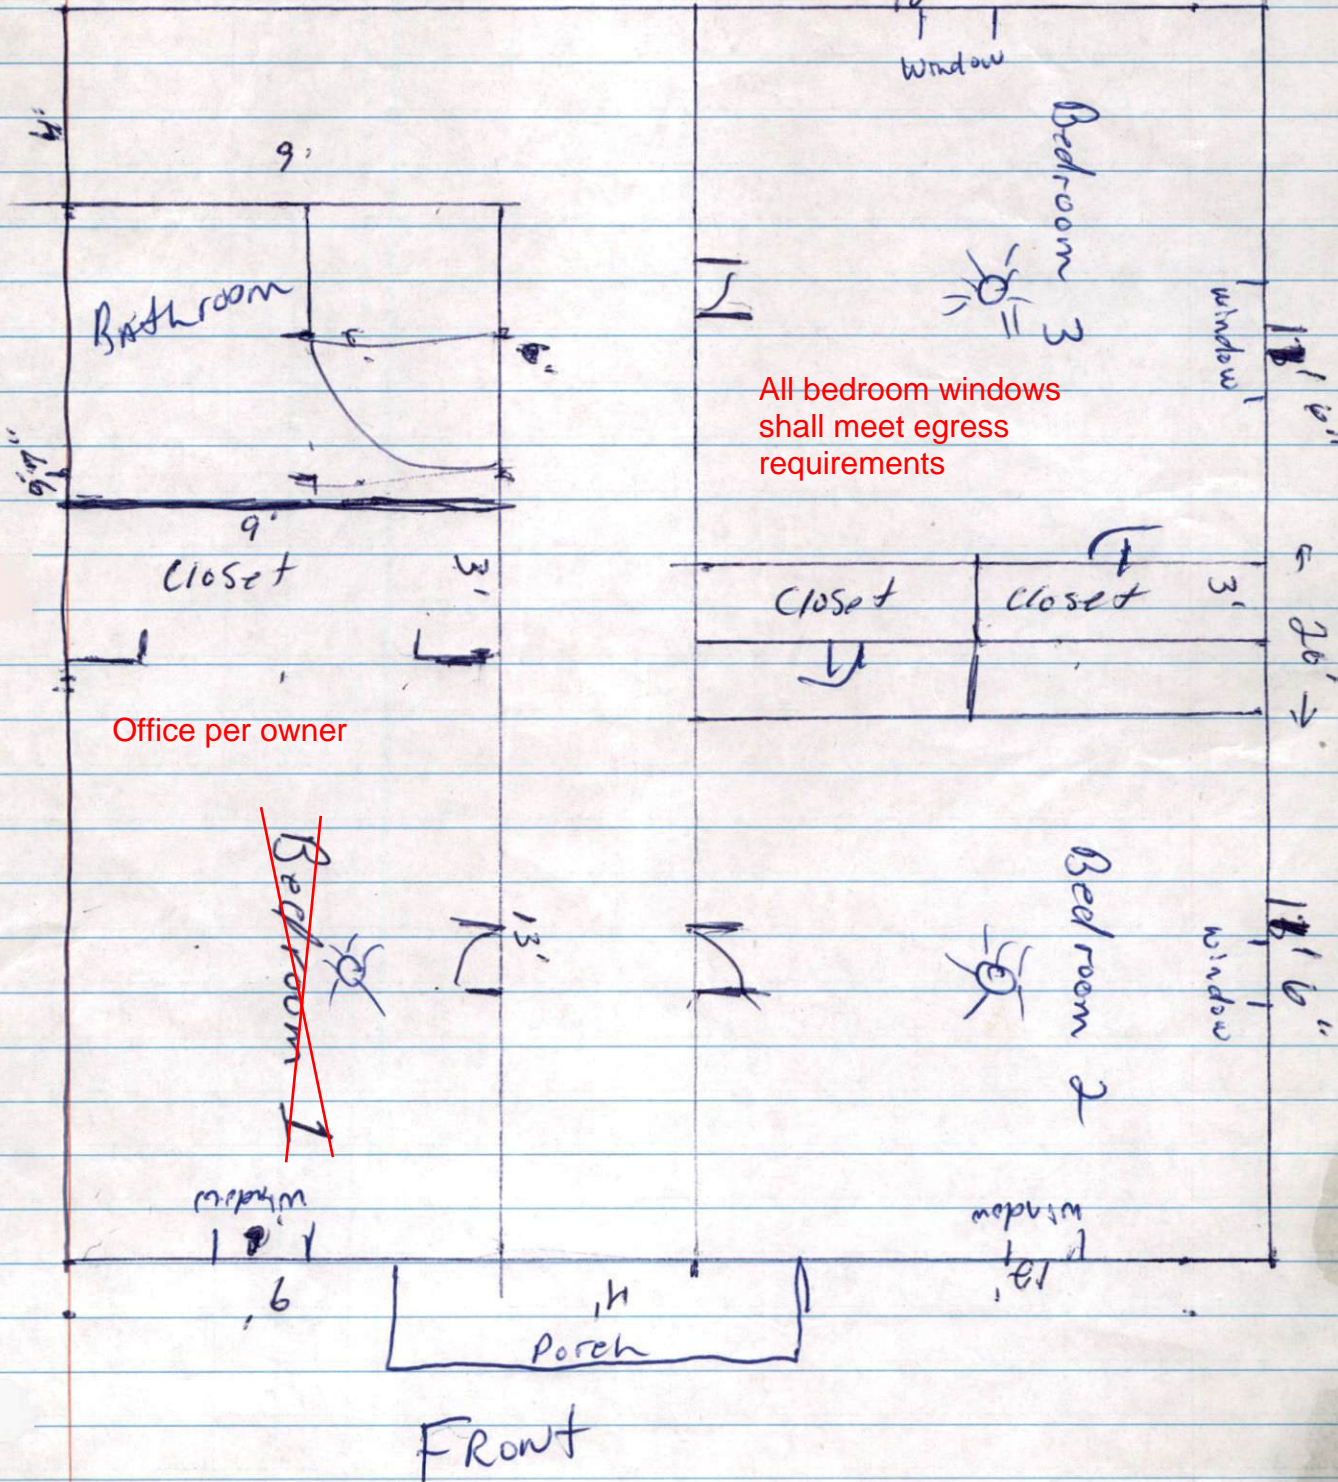 Window
4'
9'
Bedroom 3
window
Bathroom
6"
All bedroom windows
shall meet egress
requirements
9'
Closet
3'
Closet
Closet
3'
← 26' →
Office per owner
Bedroom 1
13'
Bedroom 2
window
6"
window
window
9'
4'
12'
Porch
FRONT